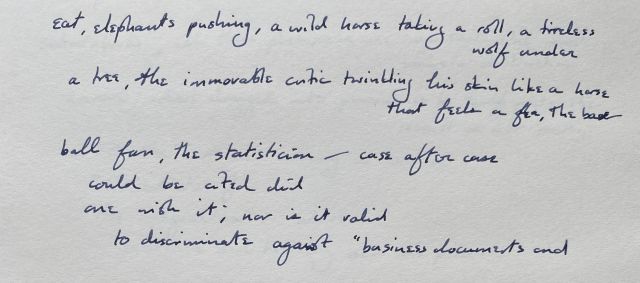 eat, elephants pushing, a wild horse taking a roll, a tireless
wolf under
a tree, the immovable critic twinkling his skin like a horse
that feels a flea, the base
ball fan, the statistician — case after case
could be cited did
one wish it; nor is it valid
to discriminate against "business documents and